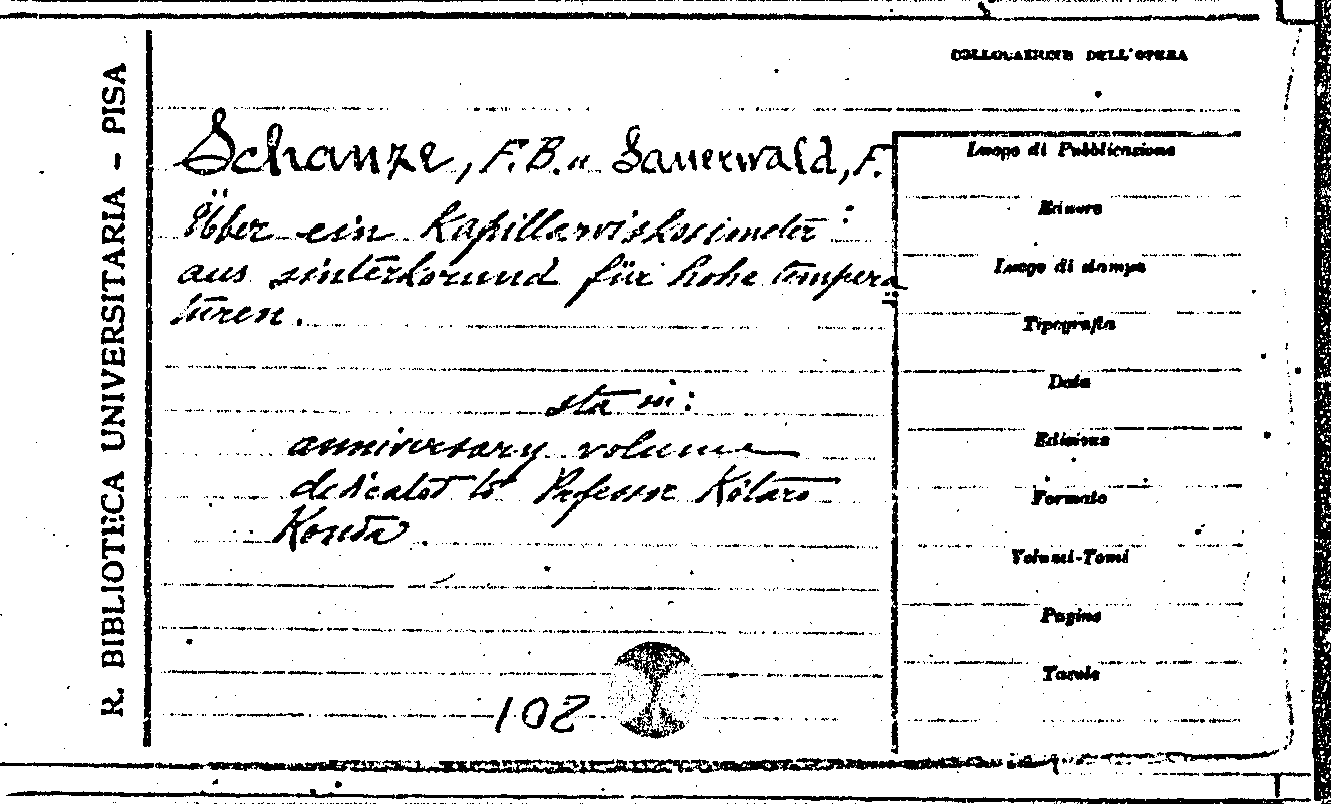 R. BIBLIOTECA UNIVERSITARIA - PISA
COLLOCAZIONE DELL'OPERA
Schanze, F.B. u Sauerwald, F.
Über ein Kapillarviskosimeter
aus sinterkorund für hohe tempera=
turen.
sta in:
anniversary volume
dedicatet to Professor Kôtaro
Honda.
102
Luogo di Pubblicazione
Editore
Luogo di stampa
Tipografia
Data
Edizione
Formato
Volumi-Tomi
Pagine
Tavole